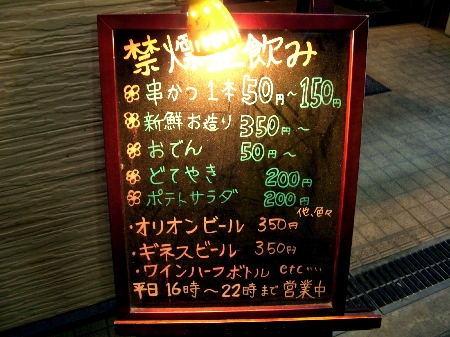 禁煙 飲み
串かつ 1本 50円～150円
新鮮お造り 350円～
おでん 50円～
どてやき 200円
ポテトサラダ 200円
他、色々
・オリオンビール 350円
・ギネスビール 350円
・ワインハーフボトル etc...
平日 16時～22時まで営業中